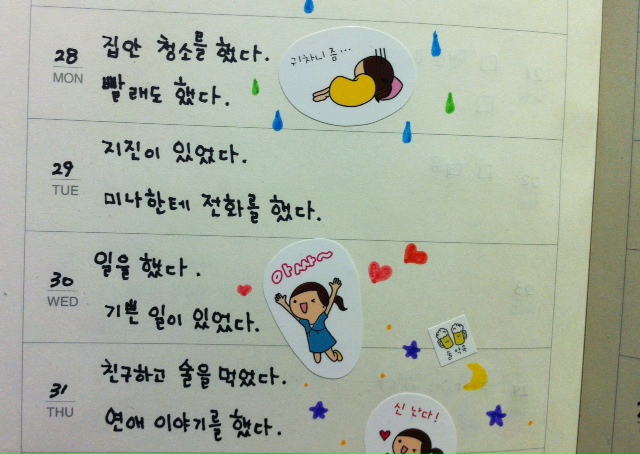 28
MON
집안 청소를 했다.
빨래도 했다.
귀차니즘...
29
TUE
지진이 있었다.
미나한테 전화를 했다.
30
WED
일을 했다.
기쁜 일이 있었다.
아싸~
31
THU
친구하고 술을 먹었다.
연애 이야기를 했다.
술 약속
신난다!